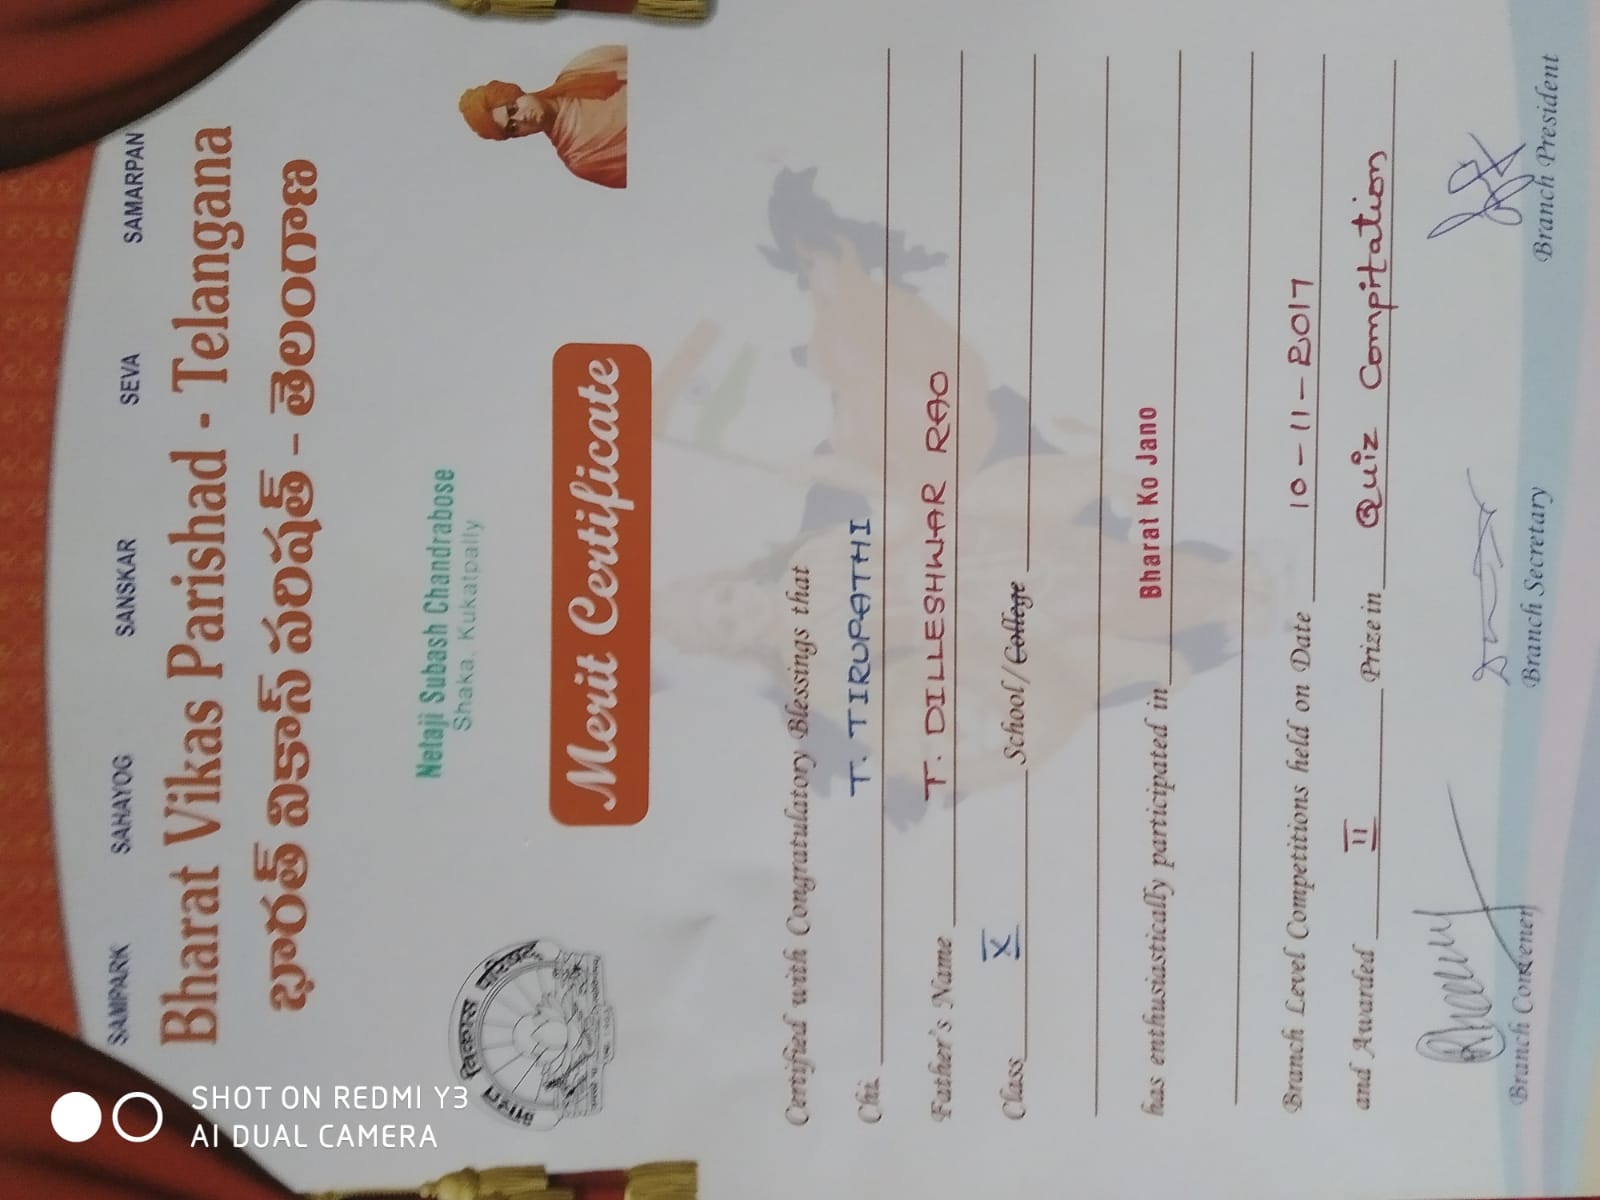 SAMPARK SAHAYOG SANSKAR SEVA SAMARPAN
Bharat Vikas Parishad - Telangana
భారత్ వికాస్ పరిషత్ - తెలంగాణ
Netaji Subash Chandrabose
Shaka, Kukatpally
भारत विकास परिषद्
Merit Certificate
Certified with Congratulatory Blessings that
Chi. T. TIRUPATHI
Father's Name T. DILLESHWAR RAO
Class X School/College
has enthusiastically participated in Bharat Ko Jano
Branch Level Competitions held on Date 10-11-2017
and Awarded II Prize in Quiz Compitation
Branch Convener Branch Secretary Branch President
SHOT ON REDMI Y3
AI DUAL CAMERA